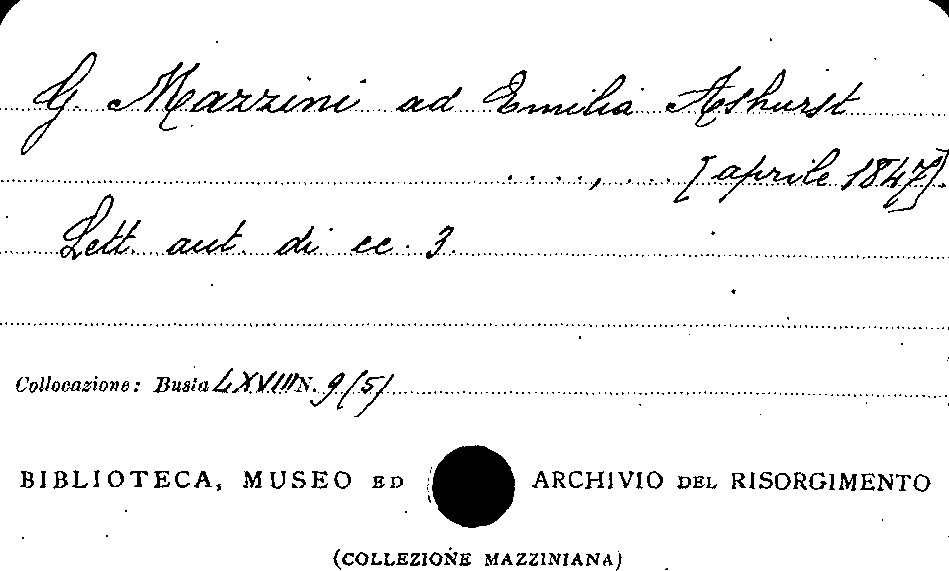 G. Mazzini ad Emilia Ashurst
...., ... [aprile 1847].
Lett. aut. di cc. 3.
Collocazione: Busta LXVIII N. 9 (5)
BIBLIOTECA, MUSEO ED ARCHIVIO DEL RISORGIMENTO
(COLLEZIONE MAZZINIANA)